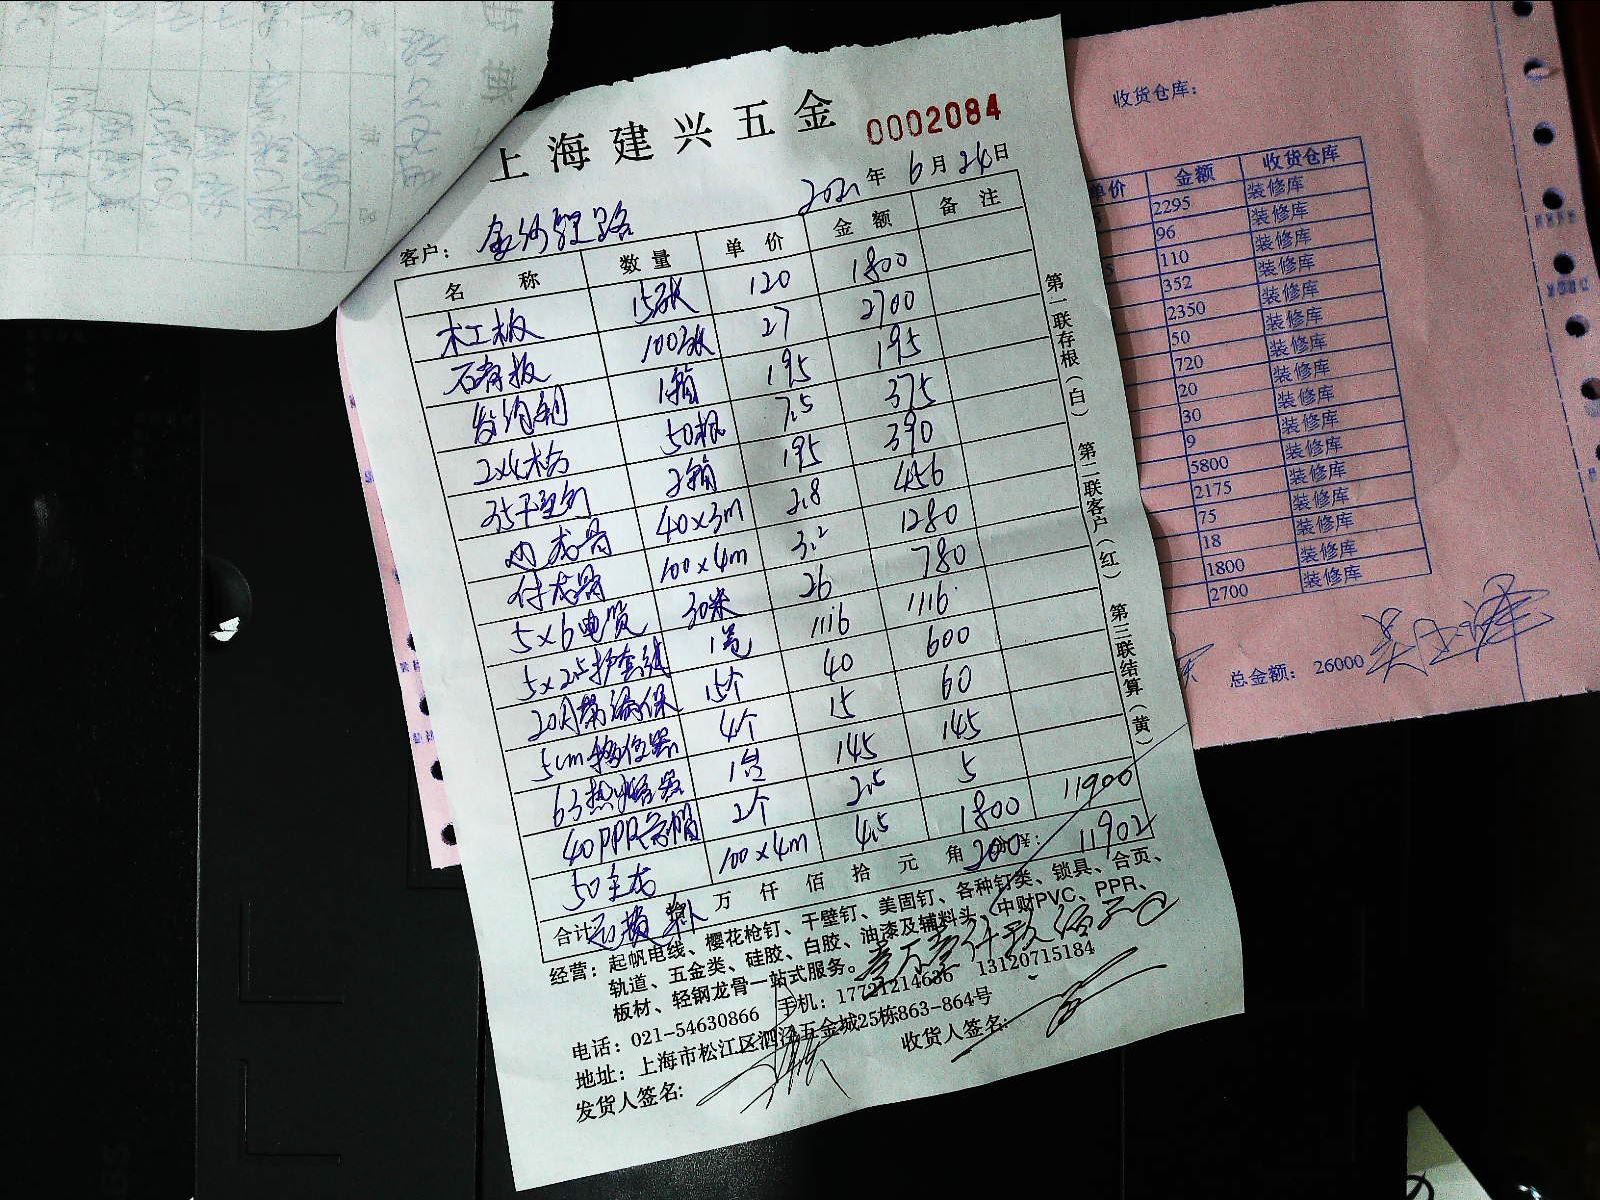 上海建兴五金 0002084
2021年 6月 24日
客户：金沙江路
名称 数量 单价 金额 备注
木工板 15张 120 1800
石膏板 100张 27 2700
发泡剂 1箱 195 195
2x4木方 50根 7.5 375
35干壁钉 2箱 195 390
龙骨 40x3m 3.8 456
付龙骨 100x4m 3.2 1280
5x6电缆 30米 26 780
5x2.5护套线 1卷 1116 1116
带漏保 15个 40 600
5cm 4个 15 60
63热熔器 1台 145 145
40PPR 2个 2.5 5
50主龙 100x4m 4.5 1800 11900
合计 万 仟 佰 拾 元 角 200 ¥: 11902
经营：起帆电线、樱花枪钉、干壁钉、美固钉、各种钉类、锁具、合页、
轨道、五金类、硅胶、白胶、油漆及辅料头、中财PVC、PPR、
板材、轻钢龙骨一站式服务。
壹万壹仟玖佰元
电话：021-54630866 手机：17721214636 13120715184
地址：上海市松江区泗泾五金城25栋863-864号
发货人签名: 收货人签名:
第一联存根（白） 第二联客户（红） 第三联结算（黄）
收货仓库：
单价 金额 收货仓库
2295 装修库
96 装修库
110 装修库
352 装修库
2350 装修库
50 装修库
720 装修库
20 装修库
30 装修库
9 装修库
5800 装修库
2175 装修库
75 装修库
18 装修库
1800 装修库
2700 装修库
总金额：26000